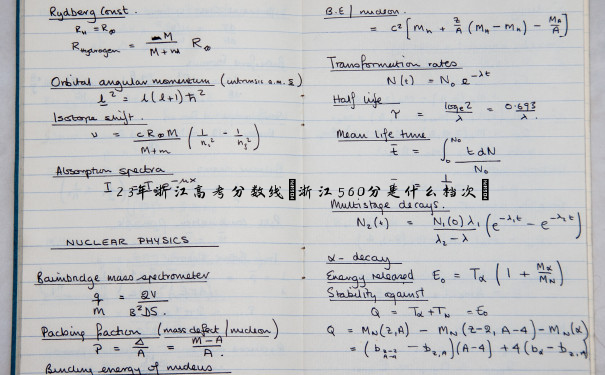 Rydberg Const.
R_H = R_∞
R_Hydrogen = M / (M + m) R_∞
Orbital angular momentum (intrinsic a.m. s)
l² = l(l+1)ħ²
Isotope shift.
υ = c R_∞ M / (M+m) (1/n₁² - 1/n₂²)
Absorption spectra
23年浙江高考分数线 浙江560分是什么档次
NUCLEAR PHYSICS
Bainbridge mass spectrometer
q/m = 2V / B²DS.
Packing fraction (mass defect / nucleon)
P = Δ/A = (M-A)/A.
Binding energy of nucleus
B.E / nucleon.
= c² [M_n + Z/A (M_H - M_n) - M_A/A]
Transformation rates
N(t) = N₀ e^{-λt}
Half life
τ = log_e 2 / λ = 0.693 / λ
Mean life time
t̄ = ∫₀^{N₀} t dN / N₀
Multistage decays.
N₂(t) = N₁(0) λ₁ / (λ₂ - λ) (e^{-λ₁t} - e^{-λ₂t})
α - decay
Energy released E₀ = T_α (1 + M_α/M_N)
Stability against
Q = T_α + T_N = E₀
Q = M_N(Z,A) - M_N(Z-2, A-4) - M_N(α)